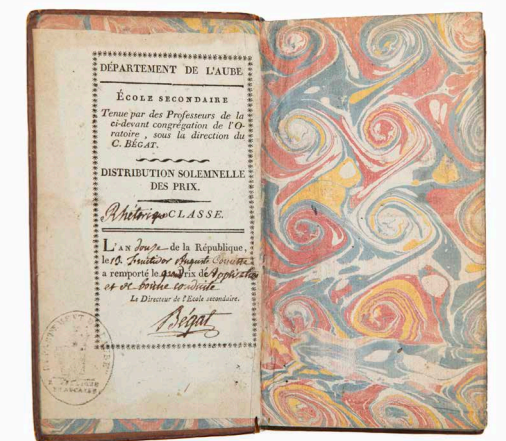 DÉPARTEMENT DE L'AUBE
ÉCOLE SECONDAIRE
Tenue par des Professeurs de la
ci-devant congrégation de l'O-
ratoire, sous la direction du
C. BÉGAT.
DISTRIBUTION SOLEMNELLE
DES PRIX.
Rhétorique CLASSE.
L'AN douze de la République,
le 19 fructidor Auguste
a remporté le Prix d'Application
et de bonne conduite
Le Directeur de l'Ecole secondaire.
Bégat